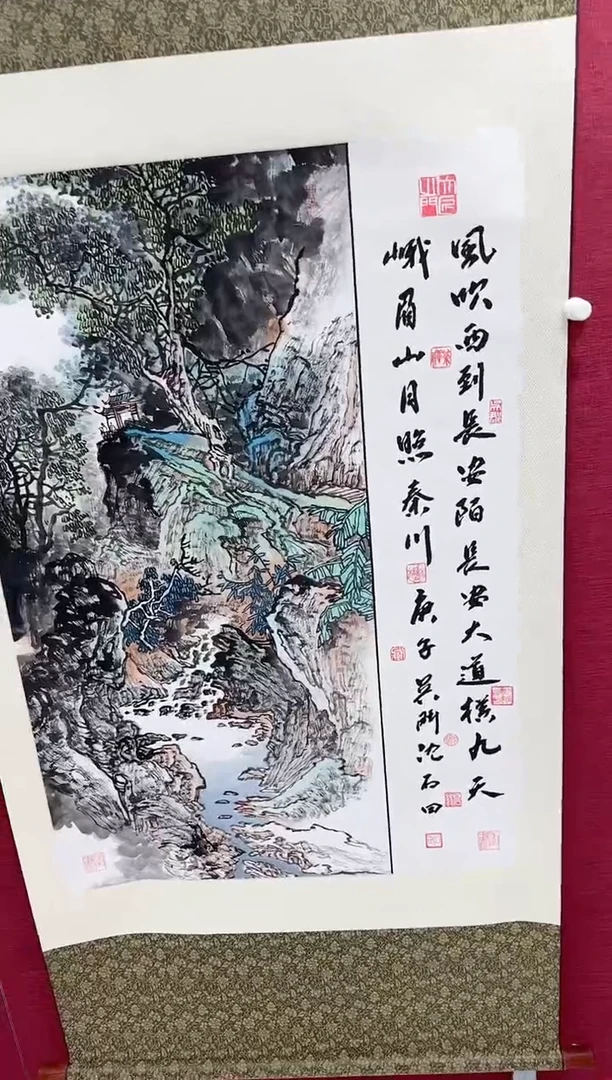 風吹西到長安陌長安大道橫九天
峨眉山月照秦川庚子吳門沈石田